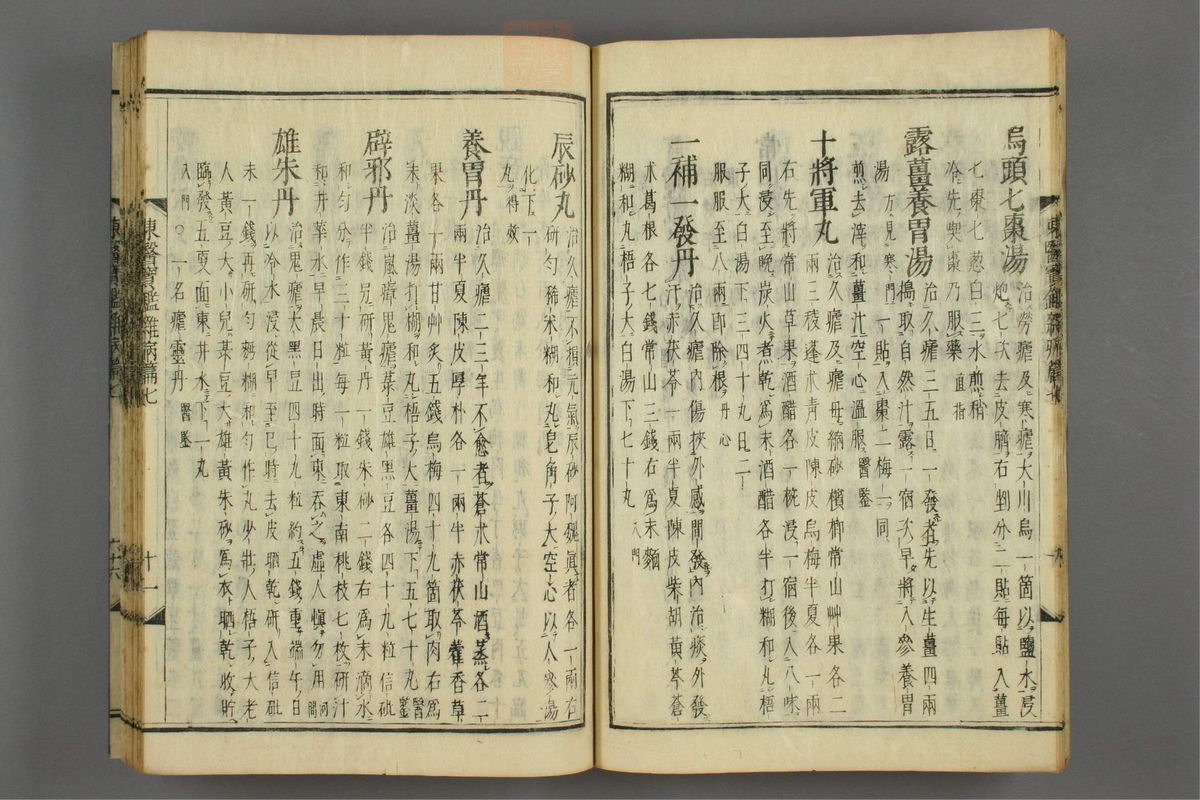 烏頭七棗湯 治勞瘧及寒瘧大川烏一箇以鹽水浸
炮七次去皮臍右剉分二貼每貼入薑
七棗七葱白三水煎稍
冷先喫棗乃服藥 直指
露薑養胃湯 治久瘧三五日一發者先以生薑四兩
搗取自然汁露一宿次早將人參養胃
湯 方見寒門 一貼入棗二梅一同
煎去滓和薑汁空心溫服 醫鑑
十將軍丸 治久瘧及瘧母縮砂檳榔常山艸果各二
兩三稜蓬朮靑皮陳皮烏梅半夏各一兩
右先將常山草果酒醋各一椀浸一宿後入八味
同浸至晚炭火煮乾爲末酒醋各半打糊和丸梧
子大白湯下三四十丸日二
服服至八兩卽除根 丹心
一補一發丹 治久瘧內傷挾外感間發內治痰外發
汗赤茯苓一兩半夏陳皮柴胡黃芩蒼
朮葛根各七錢常山三錢右爲末麵
糊和丸梧子大白湯下七十丸 入門
東醫寶鑑雜病篇七
辰砂丸 治久瘧不損元氣辰砂阿魏眞者各一兩右
研勻稀米糊和丸皂角子大空心以人參湯
化下一
丸 得效
養胃丹 治久瘧二三年不愈者蒼朮常山酒蒸各二
兩半夏陳皮厚朴各一兩半赤茯苓藿香草
果各一兩甘艸炙五錢烏梅四十九箇取肉右爲
末淡薑湯打糊和丸梧子大薑湯下五七十丸 醫鑑
辟邪丹 治嵐瘴鬼瘧菉豆雄黑豆各四十九粒信砒
半錢另研黃丹一錢朱砂二錢右爲末滴水
和勻分作三十粒每一粒取東南桃枝七枚研汁
和井華水早晨日出時面東呑之虛人愼勿用 河間
雄朱丹 治鬼瘧大黑豆四十九粒約五錢重端午日
以冷水浸從早至巳時去皮晒乾硏入信砒
末一錢再硏勻麪糊和勻作丸少壯人梧子大老
人黃豆大小兒菉豆大雄黃朱砂爲衣晒乾收貯
臨發五更面東井水下一丸
入門 ○一名瘧靈丹 醫鑑
東醫寶鑑雜病篇七
十一